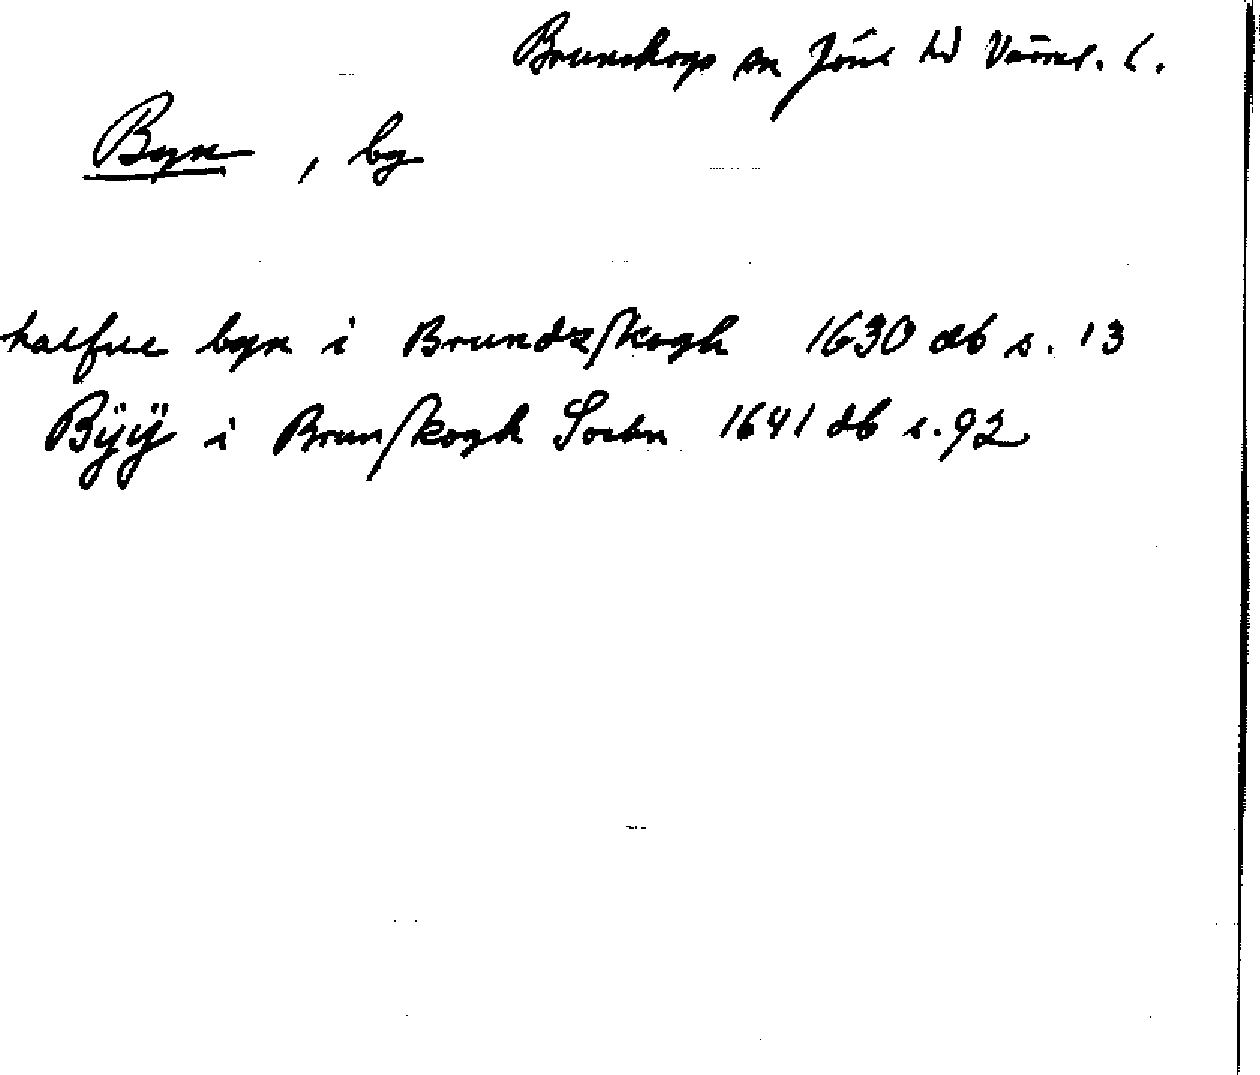 Brunskogs sn Jösse hd Värml. l.
Byn, by
halfue byn i Brundzskogh 1630 db s. 13
Bÿÿ i Brunskogh Sochn 1641 db s. 92